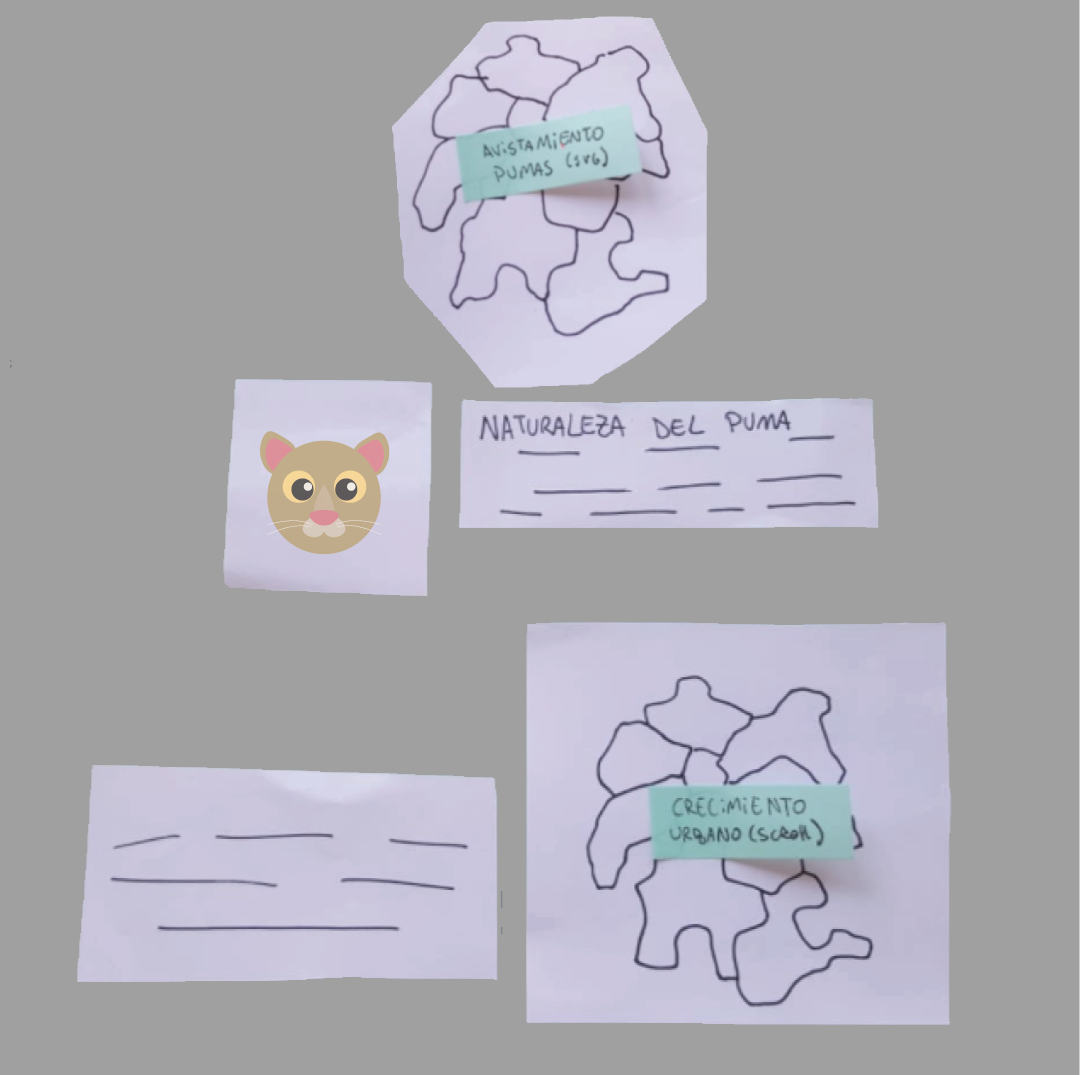 AVISTAMIENTO
PUMAS (SVG)
NATURALEZA DEL PUMA
CRECIMIENTO
URBANO (SCROLL)